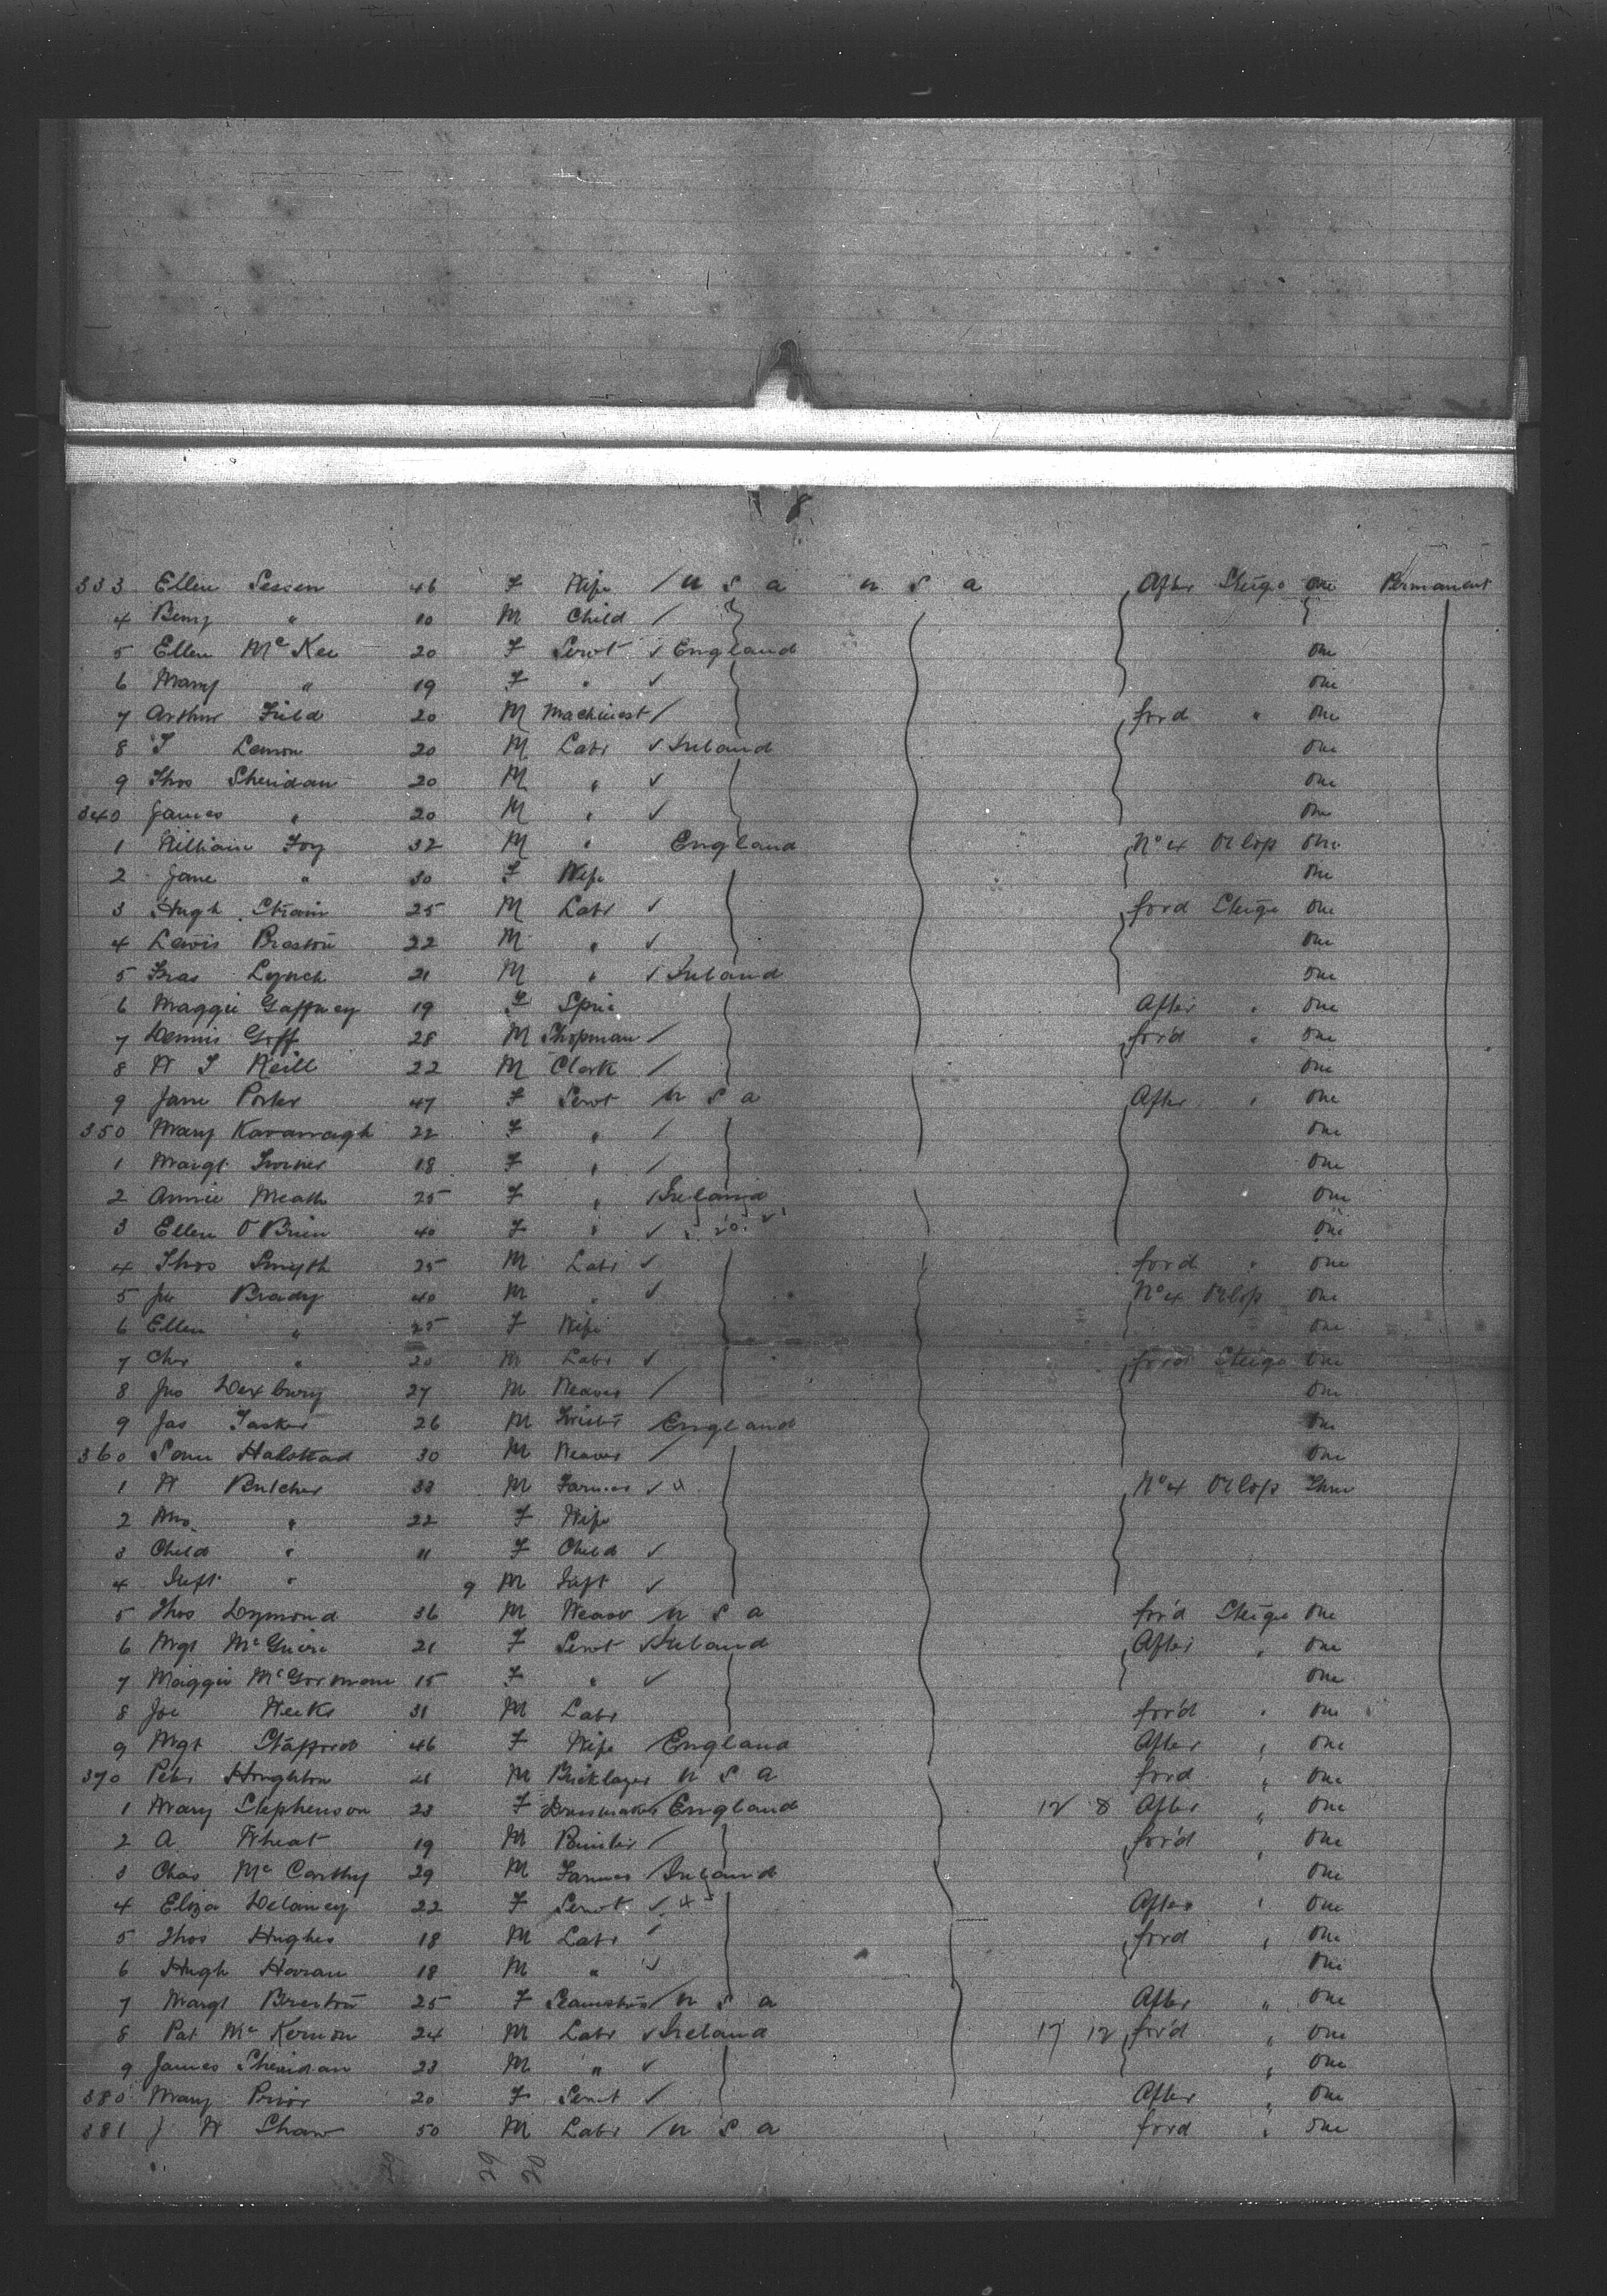 8
333 Ellen Sessen 46 F Wife / U S A U S A After Steige One Permanent
4 Benj " 10 M Child /
5 Ellen McKee 20 F Servt ✓ England One
6 Mary " 19 F " ✓ One
7 Arthur Field 20 M Machinest / ford " One
8 T Lemon 20 M Labr ✓ Ireland One
9 Thos Sheridan 20 M " ✓ One
340 James " 20 M " ✓ One
1 William Foy 32 M " England No 4 Orlop One
2 Jane " 30 F Wife One
3 Hugh Strain 25 M Labr ✓ ford Steige One
4 Lewis Preston 22 M " ✓ One
5 Fras Lynch 21 M " ✓ Ireland One
6 Maggie Gaffney 19 F Spin After " One
7 Dennis Goff 28 M Shopman / for'd " One
8 W J Neill 22 M Clerk / One
9 Jane Porter 47 F Servt / U S A After " One
350 Mary Kavanagh 22 F " / One
1 Margt 18 F " / One
2 Annie Meath 25 F " / Ireland One
3 Ellen O'Brien 40 F " ✓ One
4 Thos Smyth 25 M Labr ✓ for'd " One
5 Brady 40 M " ✓ No 4 Orlop One
6 Ellen " 25 F Wife One
7 " 20 M Labr ✓ for'd Steige One
8 Jno Dexbury 27 M Weaver / One
9 Jas Tasker 26 M England One
360 Halstead 30 M Weaver / One
1 W Butcher 33 M Farmer ✓ x No 4 Orlop Three
2 Mrs " 22 F Wife
3 Child " 11 F Child ✓
4 Inft " 9 M Inft ✓
5 Thos Dymond 36 M Weavr / U S A for'd Steige One
6 Mgt McGuire 21 F Servt ✓ Ireland After " One
7 Maggie McGorman 15 F " ✓ One
8 Joe Weeks 31 M Labr for'd " One
9 Mgt Stafford 46 F Wife / England After " One
370 Peter Houghton M Bricklayer U S A for'd " One
1 Mary Stephenson 23 F Dressmaker / England 12 8 After " One
2 A Wheat 19 M / for'd " One
3 Chas McCarthy 29 M Farmer / Ireland One
4 Eliza Delaney 22 F Servt ✓ x After " One
5 Thos Hughes 18 M Labr / for'd " One
6 Hugh Horan 18 M " ✓ One
7 Margt 25 F / U S A After " One
8 Pat McKernon 24 M Labr ✓ Ireland 17 12 for'd " One
9 James Sheridan 23 M " ✓ " One
380 Mary Prior 20 F Servt ✓ After " One
381 J W Shaw 50 M Labr / U S A for'd " One
29 20